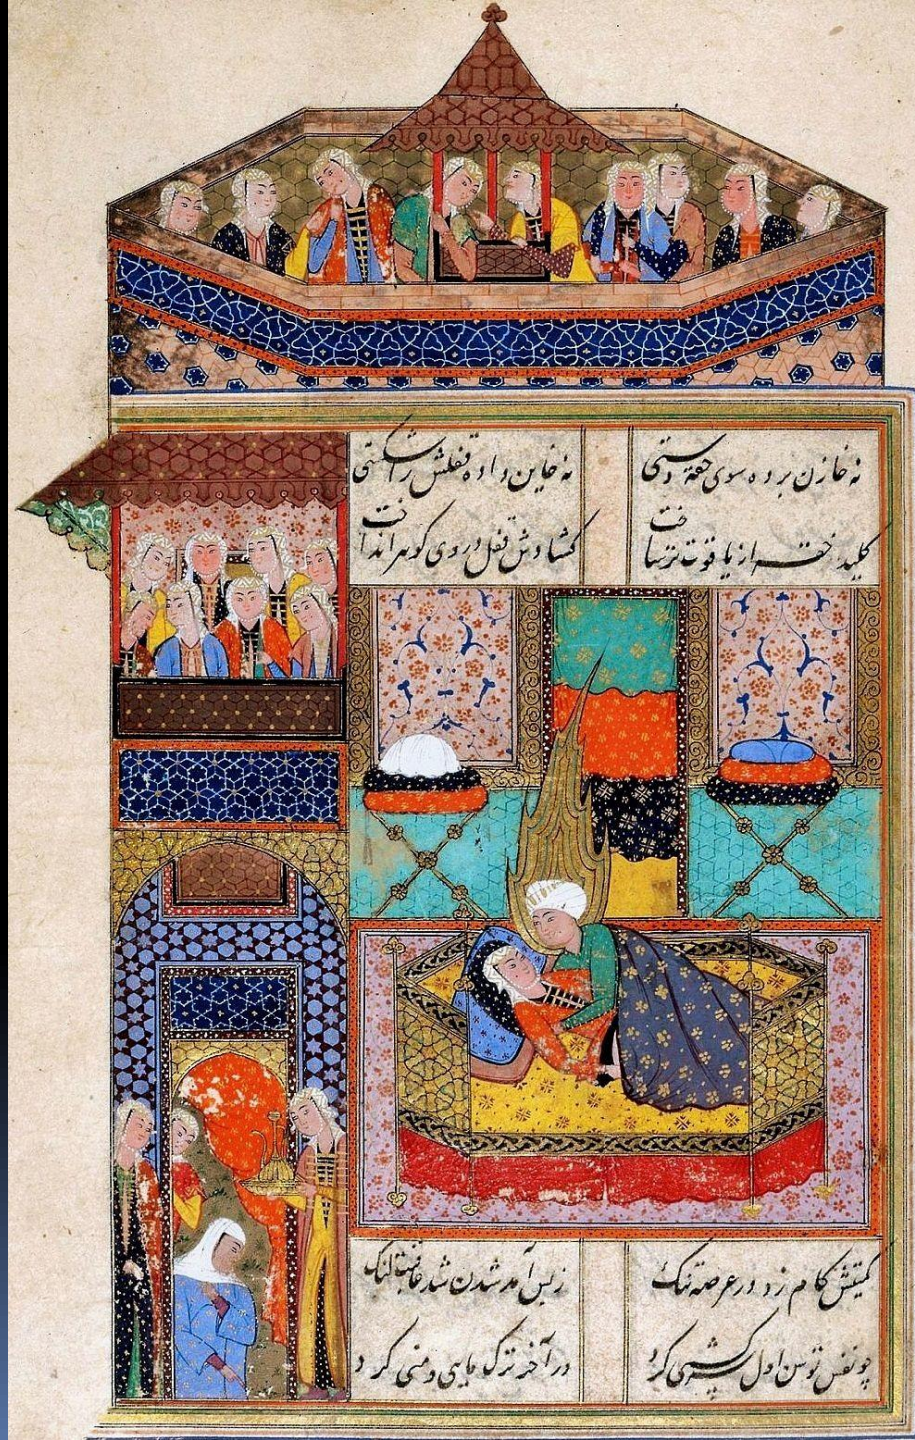 نه خازن برده سوی حقه دستی نه خاین داده قفلش را شکستی
کلید حقه از یاقوت تر ساخت کشادش قفل و در وی کوهر انداخت
کمیتش کام زد در عرصه تنک ز بس آمد شدن شد عاقبت لنک
چو نفس توسن اول سرکشی کرد در آخر ترک مایی و منی کرد